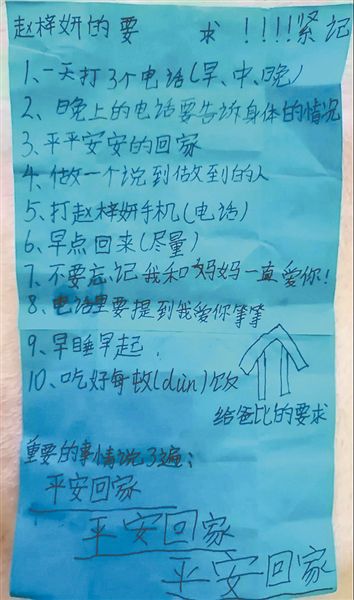 赵梓妍的要 求 !!!!紧记
1、一天打3个电话(早、中、晚)
2、晚上的电话要告诉身体的情况
3、平平安安的回家
4、做一个说到做到的人
5、打赵梓妍手机(电话)
6、早点回来(尽量)
7、不要忘记我和妈妈一直爱你!
8、电话里要提到我爱你等等
9、早睡早起.
10、吃好每顿(dùn)饭
给爸比的要求
重要的事情说3遍:
平安回家
平安回家
平安回家